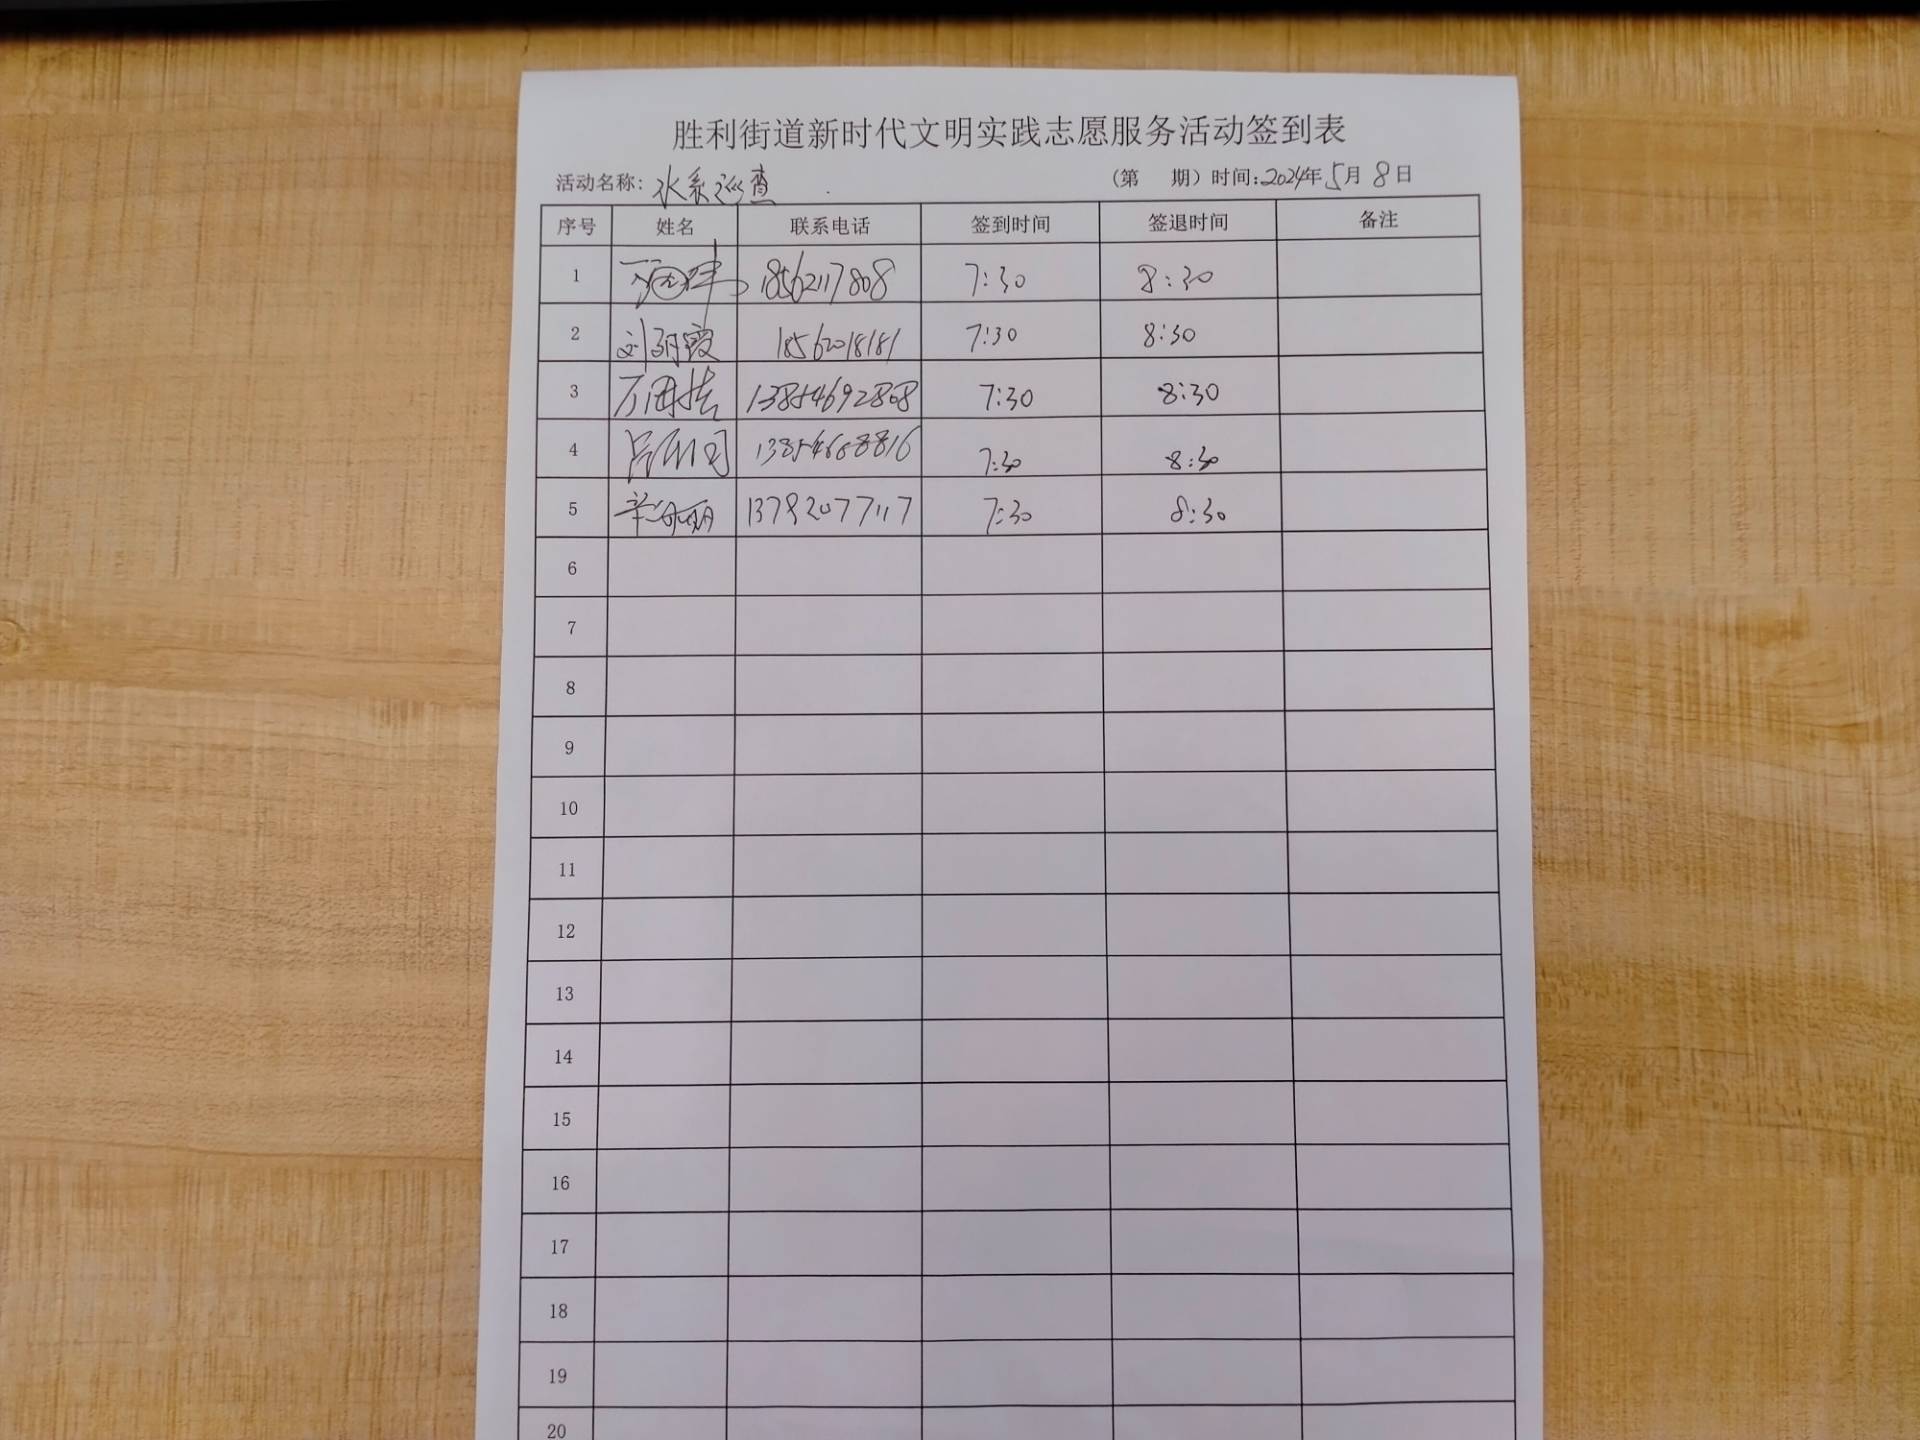 胜利街道新时代文明实践志愿服务活动签到表
活动名称: 水系巡查 (第 期) 时间: 2024年5月8日
序号 姓名 联系电话 签到时间 签退时间 备注
1 7:30 8:30
2 刘丽霞 18562018181 7:30 8:30
3 13854692808 7:30 8:30
4 13854688816 7:30 8:30
5 13792077117 7:30 8:30
6
7
8
9
10
11
12
13
14
15
16
17
18
19
20